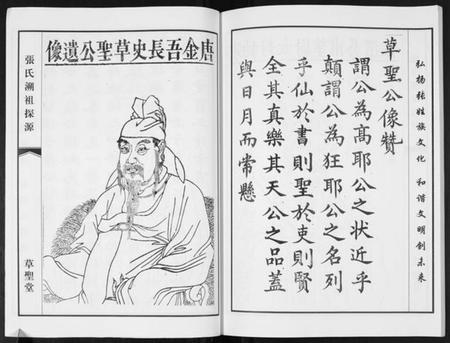 弘扬张姓族文化 和谐文明创未来
草聖公像贊
謂公為高耶公之狀近乎
顛謂公為狂耶公之名列
乎仙於書則聖於吏則賢
全其真樂其天公之品蓋
與日月而常懸
唐金吾長史草聖公遺像
張氏溯祖探源
草聖堂